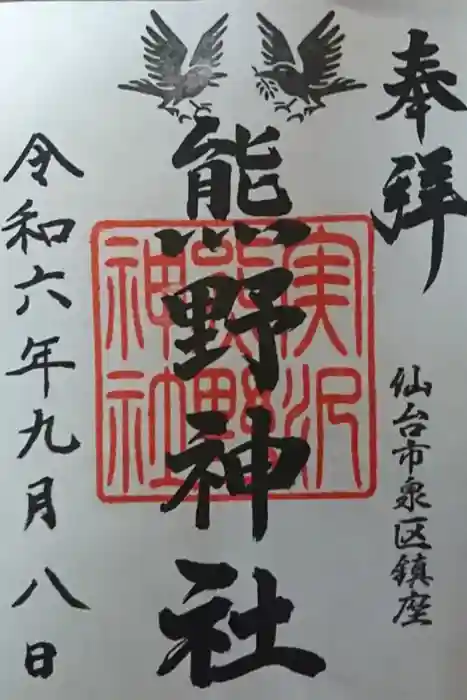 奉拝
仙台市泉区鎮座
熊野神社
実沢
熊野
神社
令和六年九月八日